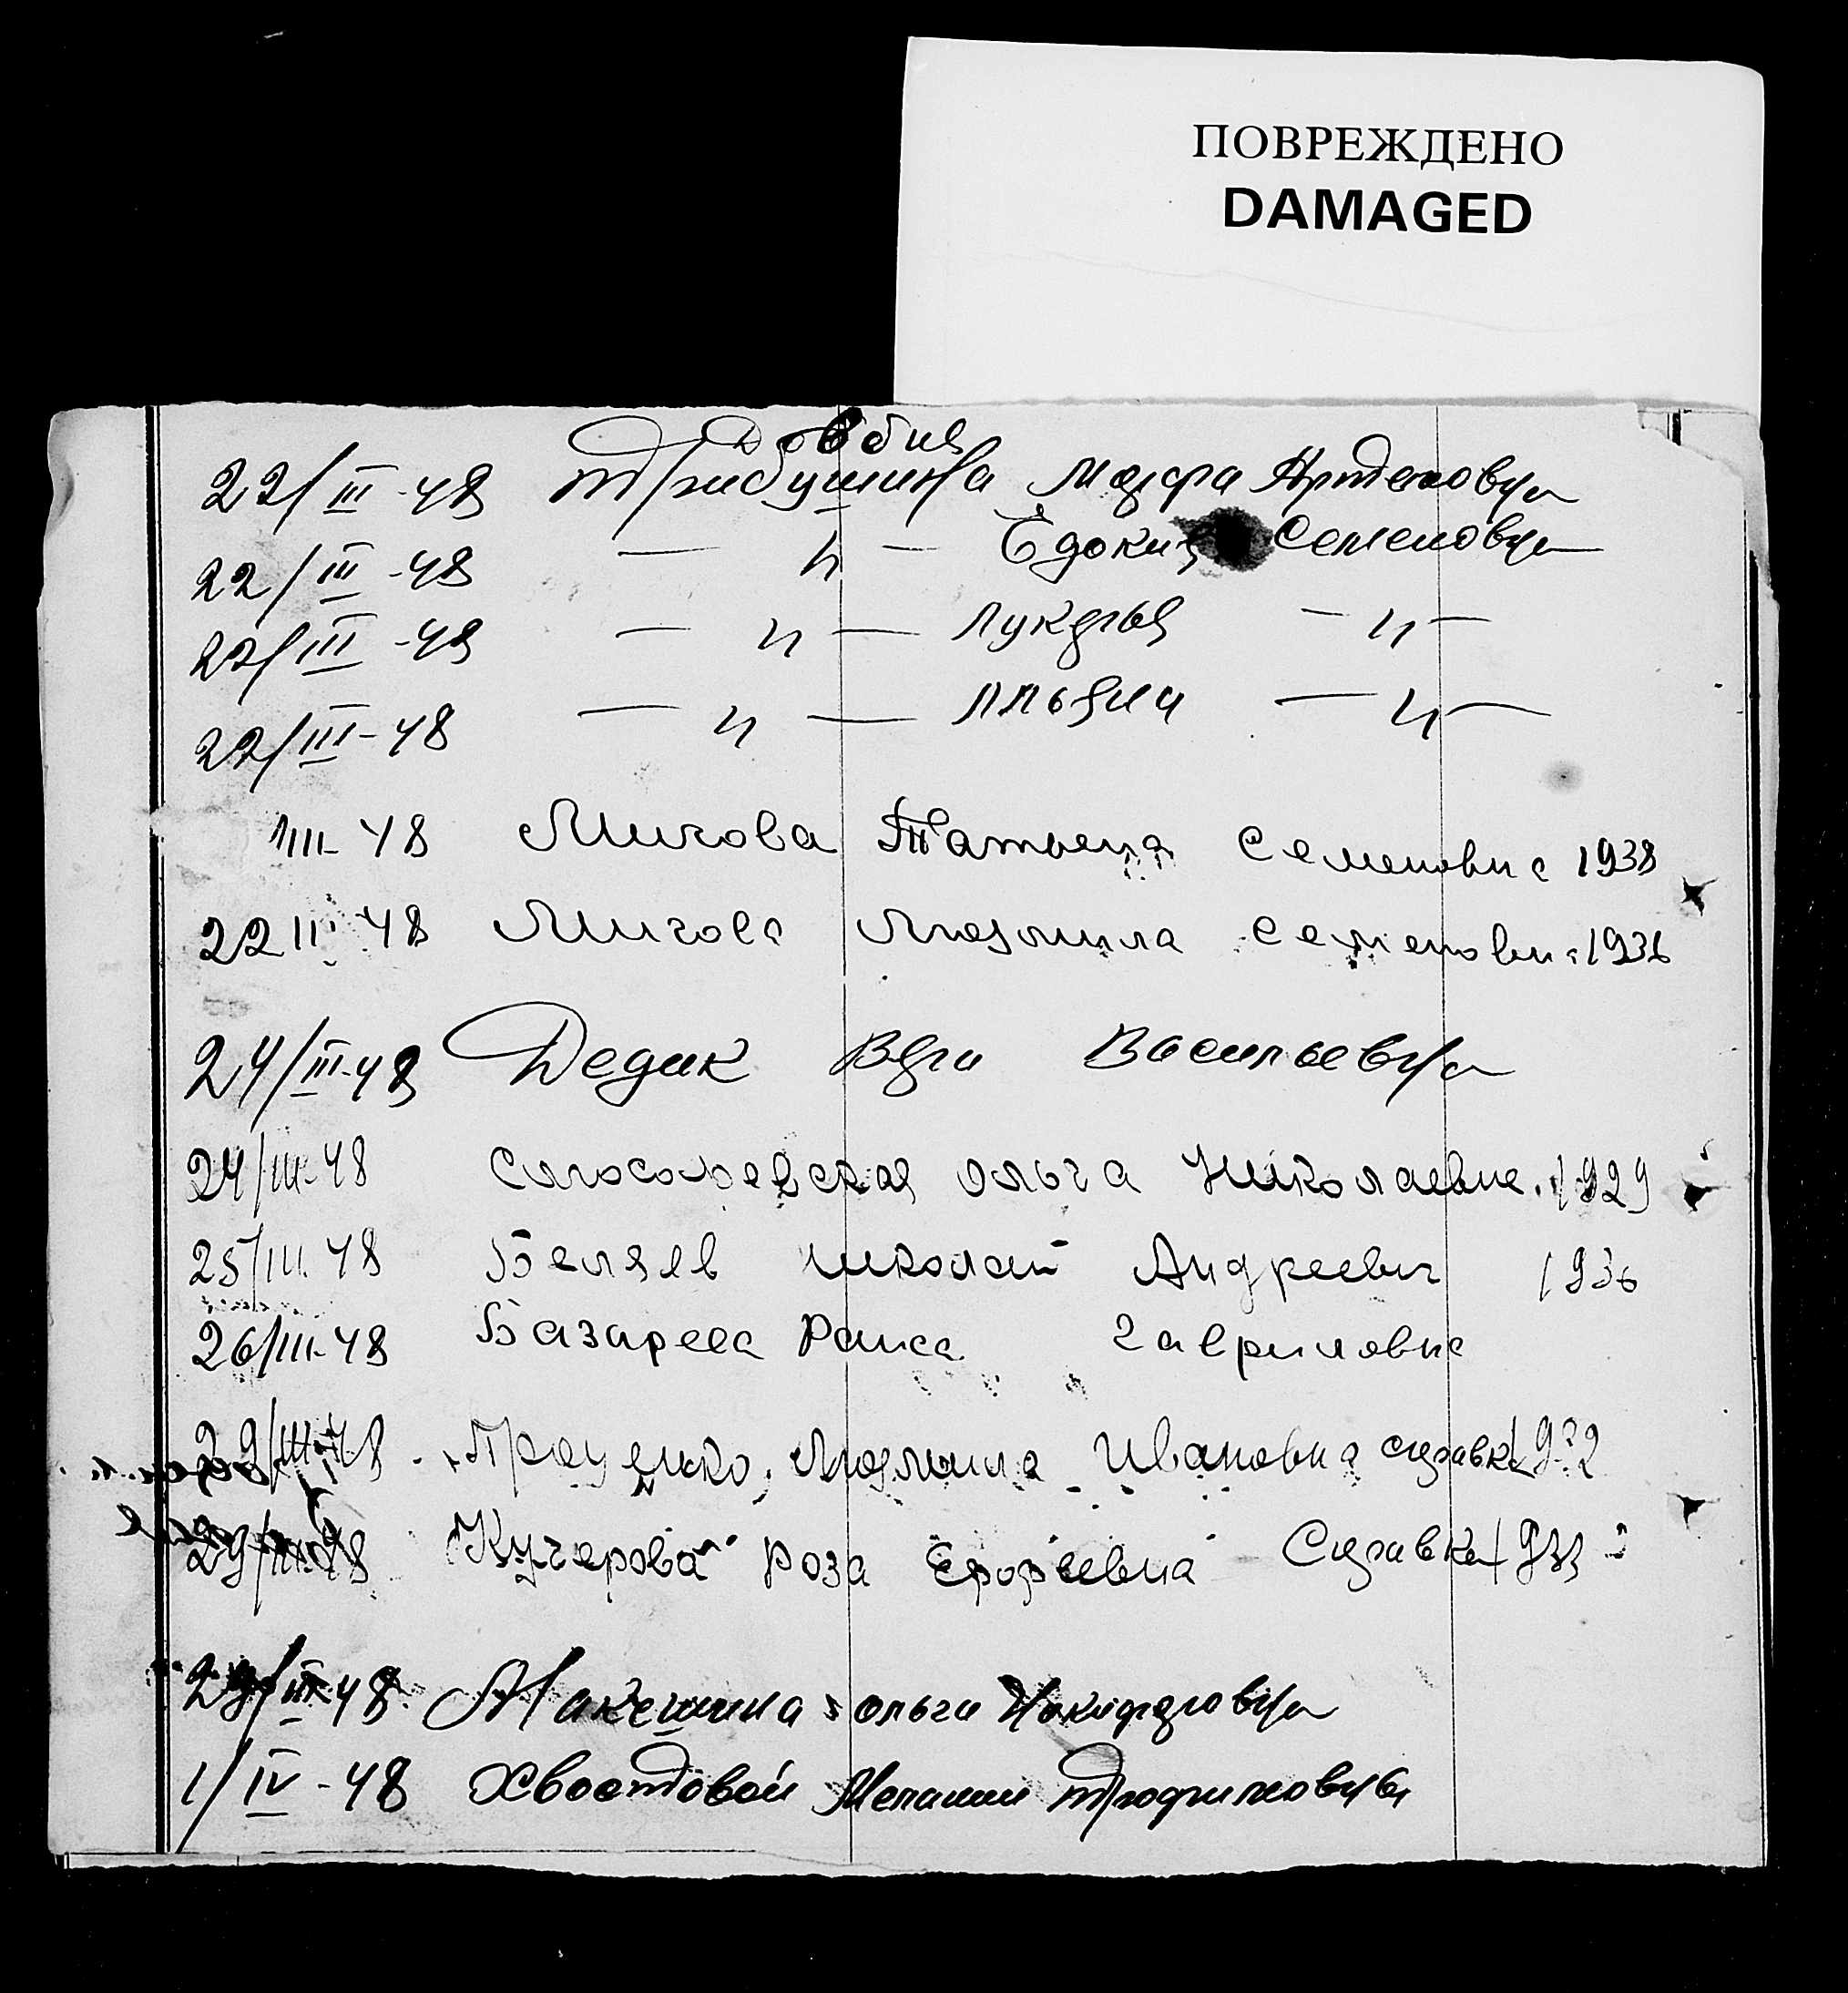 ПОВРЕЖДЕНО
DAMAGED
22/III-48 Трибушина Марфа Артемовна
22/III-48 — „ — Едокия Семеновна
22/III-48 — „ — Лукерья — „ —
22/III-48 — „ — — „ —
III-48 Мигова Татьена Семеновна 1938
22 III 48 Мигова Людмила Семеновна 1936
24/III-48 Дедик Вера Васильевна
24/III-48 Ольга Николаевна 1929
25/III-48 Беляев Николай Андреевич 1936
26/III-48 Базарева Раиса Гавриловна
29/III-48 Людмила Ивановна справка 1932
29/III-48 Кучерова Роза Егорьевна Справка 1933
29/III-48 Макешина Ольга Никифоровна
1/IV-48 Хвостовой Мелании Трофимовны